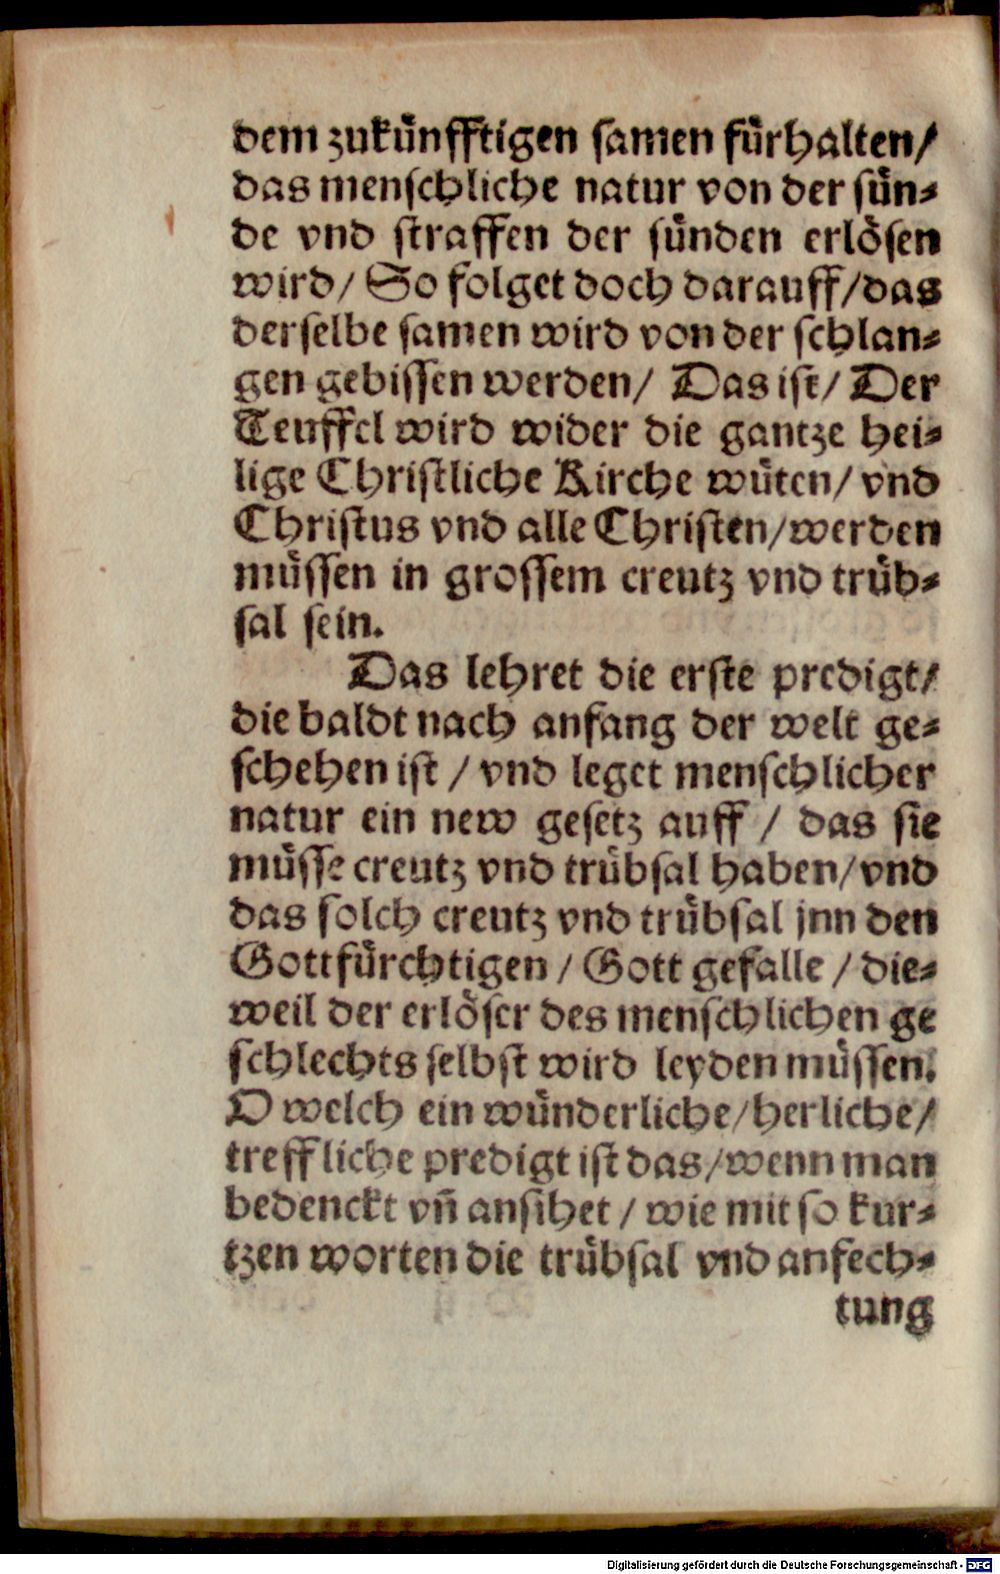 dem zukuͤnfftigen samen fuͤrhalten/
das menschliche natur von der suͤn⸗
de vnd straffen der suͤnden erloͤsen
wird/ So folget doch darauff/das
derselbe samen wird von der schlan⸗
gen gebissen werden/ Das ist/ Der
Teuffel wird wider die gantze hei⸗
lige Christliche Kirche wuͤten/ vnd
Christus vnd alle Christen/werden
muͤssen in grossem creutz vnd truͤb⸗
sal sein.
Das lehret die erste predigt/
die baldt nach anfang der welt ge⸗
schehen ist / vnd leget menschlicher
natur ein new gesetz auff / das sie
muͤsse creutz vnd truͤbsal haben/vnd
das solch creutz vnd truͤbsal jnn den
Gottfuͤrchtigen / Gott gefalle / die⸗
weil der erloͤser des menschlichen ge
schlechts selbst wird leyden muͤssen.
O welch ein wuͤnderliche/herliche/
treffliche predigt ist das/wenn man
bedenckt vñ ansihet / wie mit so kur⸗
tzen worten die truͤbsal vnd anfech⸗
tung
Digitalisierung gefördert durch die Deutsche Forschungsgemeinschaft - DFG